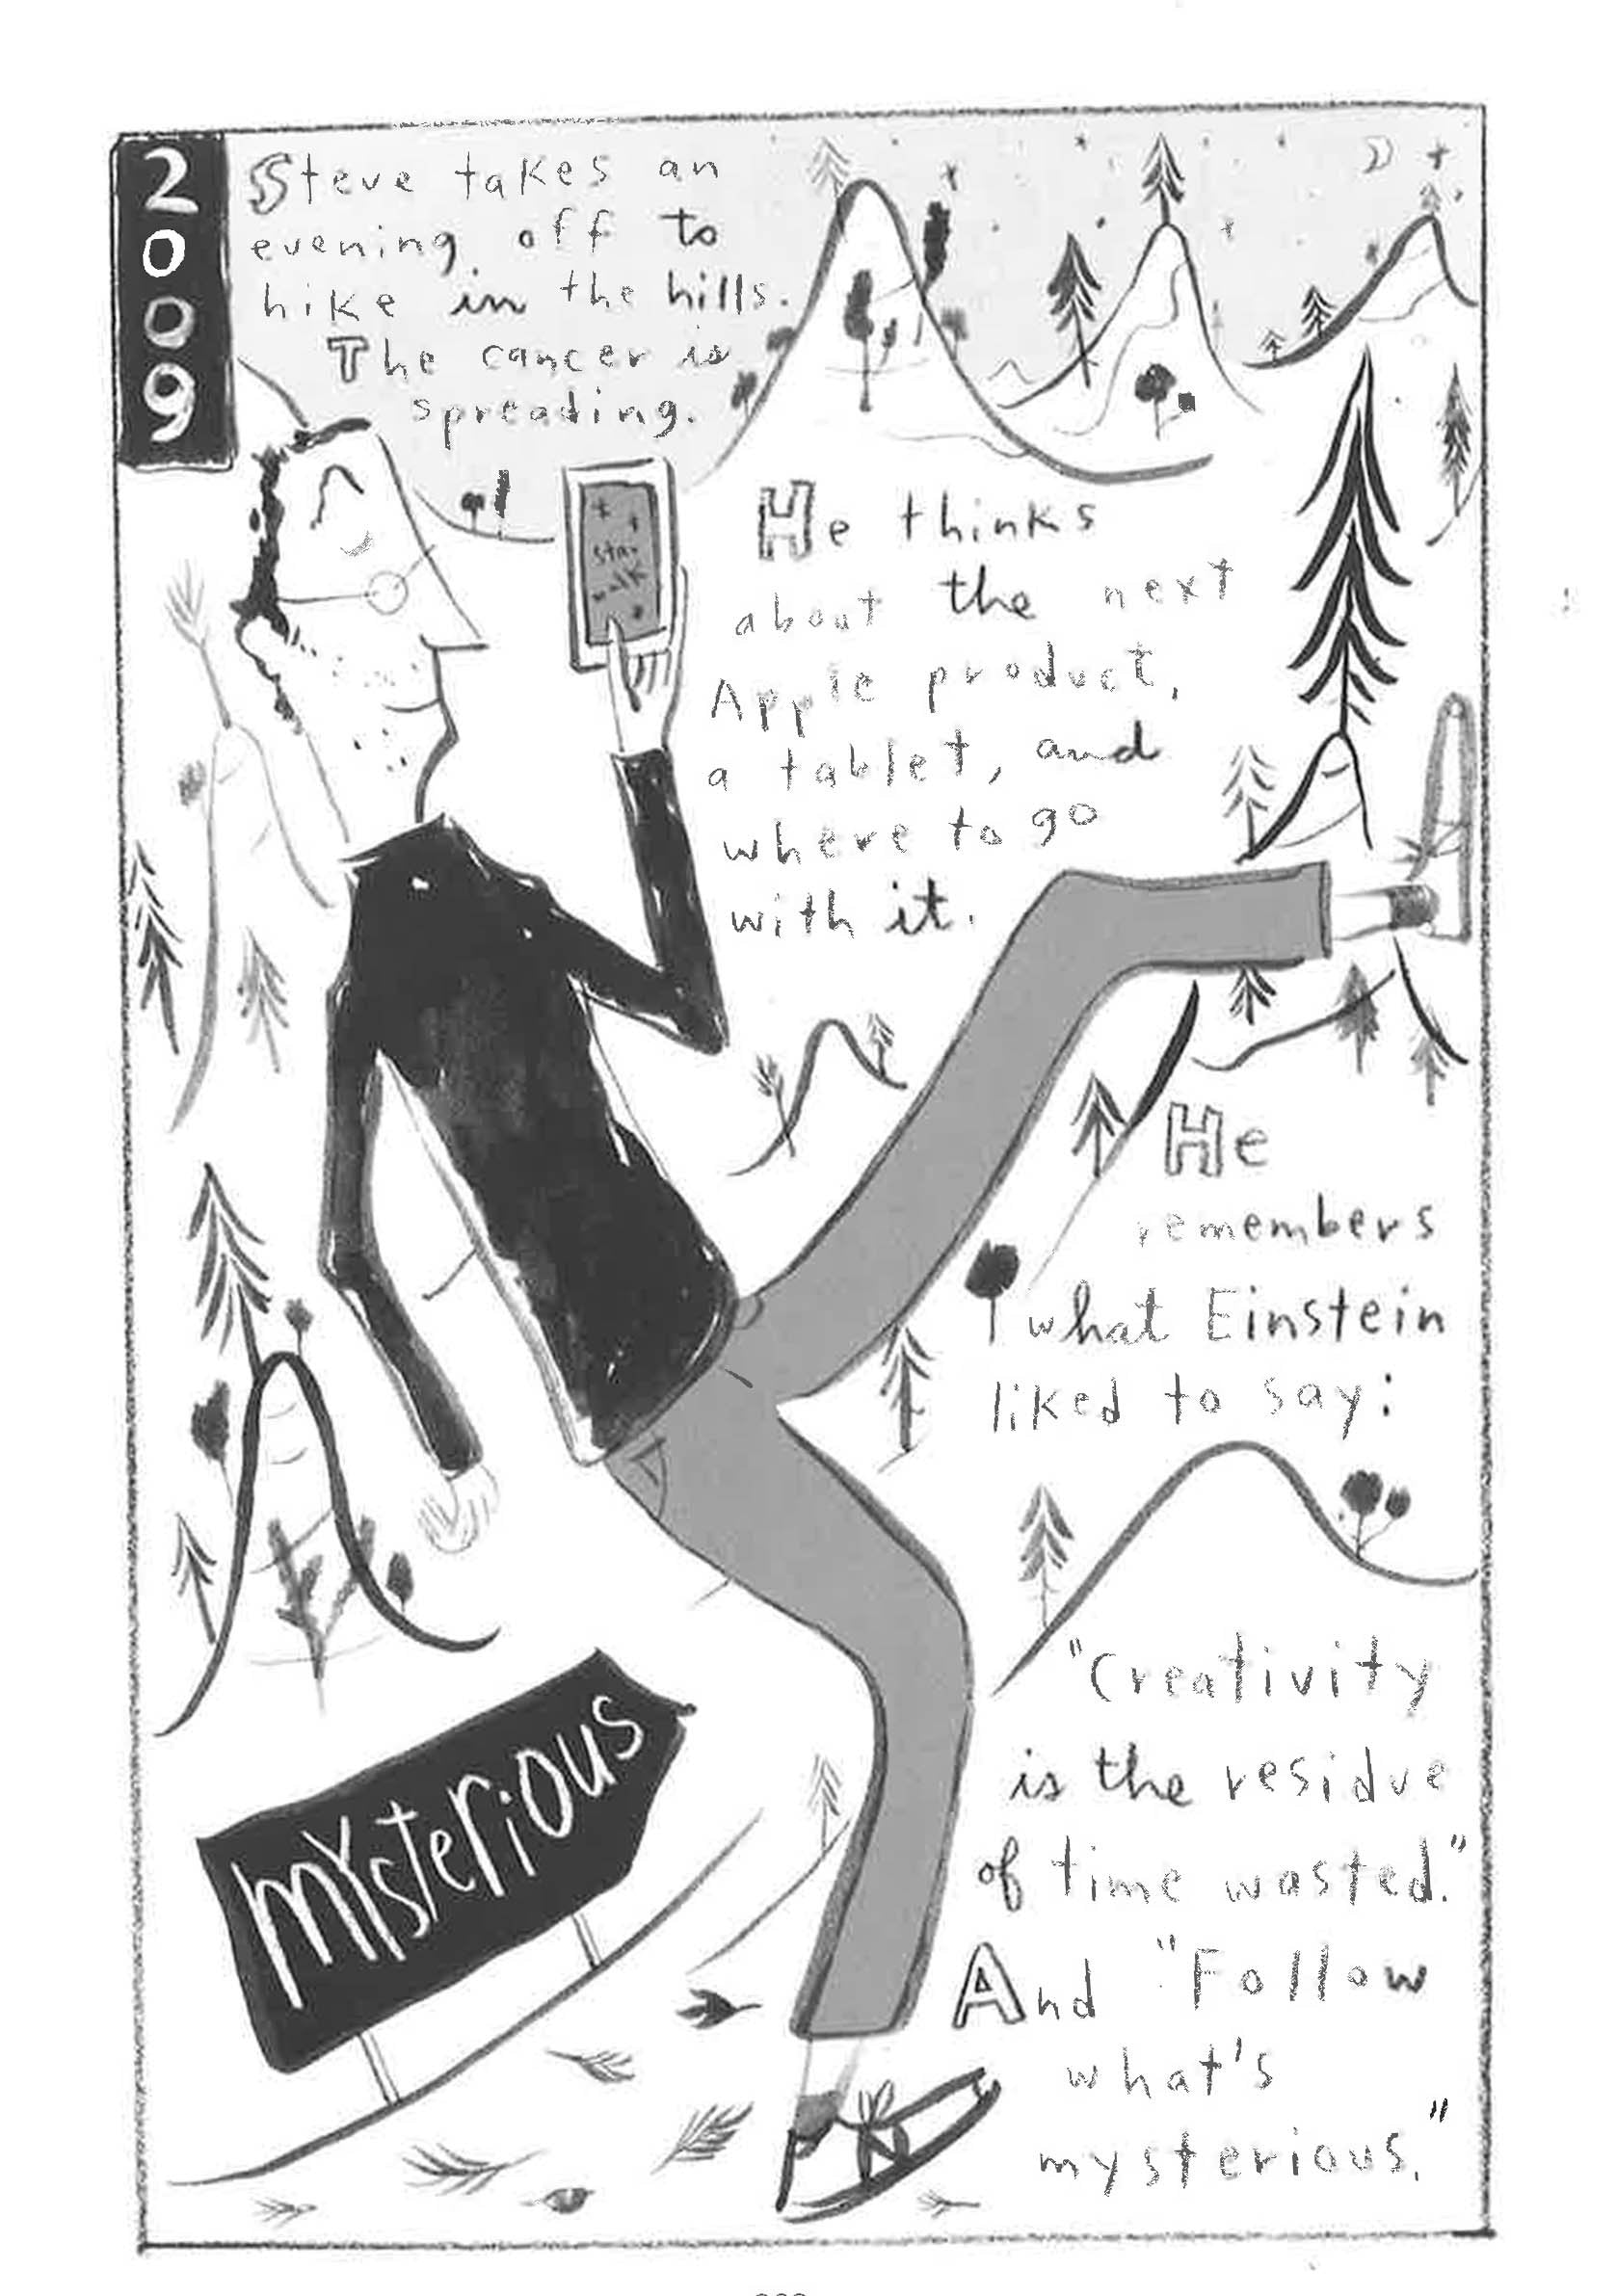 2009
Steve takes an
evening off to
hike in the hills.
The cancer is
spreading.
star
walk
He thinks
about the next
Apple product,
a tablet, and
where to go
with it.
He
remembers
what Einstein
liked to say:
"Creativity
is the residue
of time wasted."
And "Follow
what's
mysterious."
mysterious